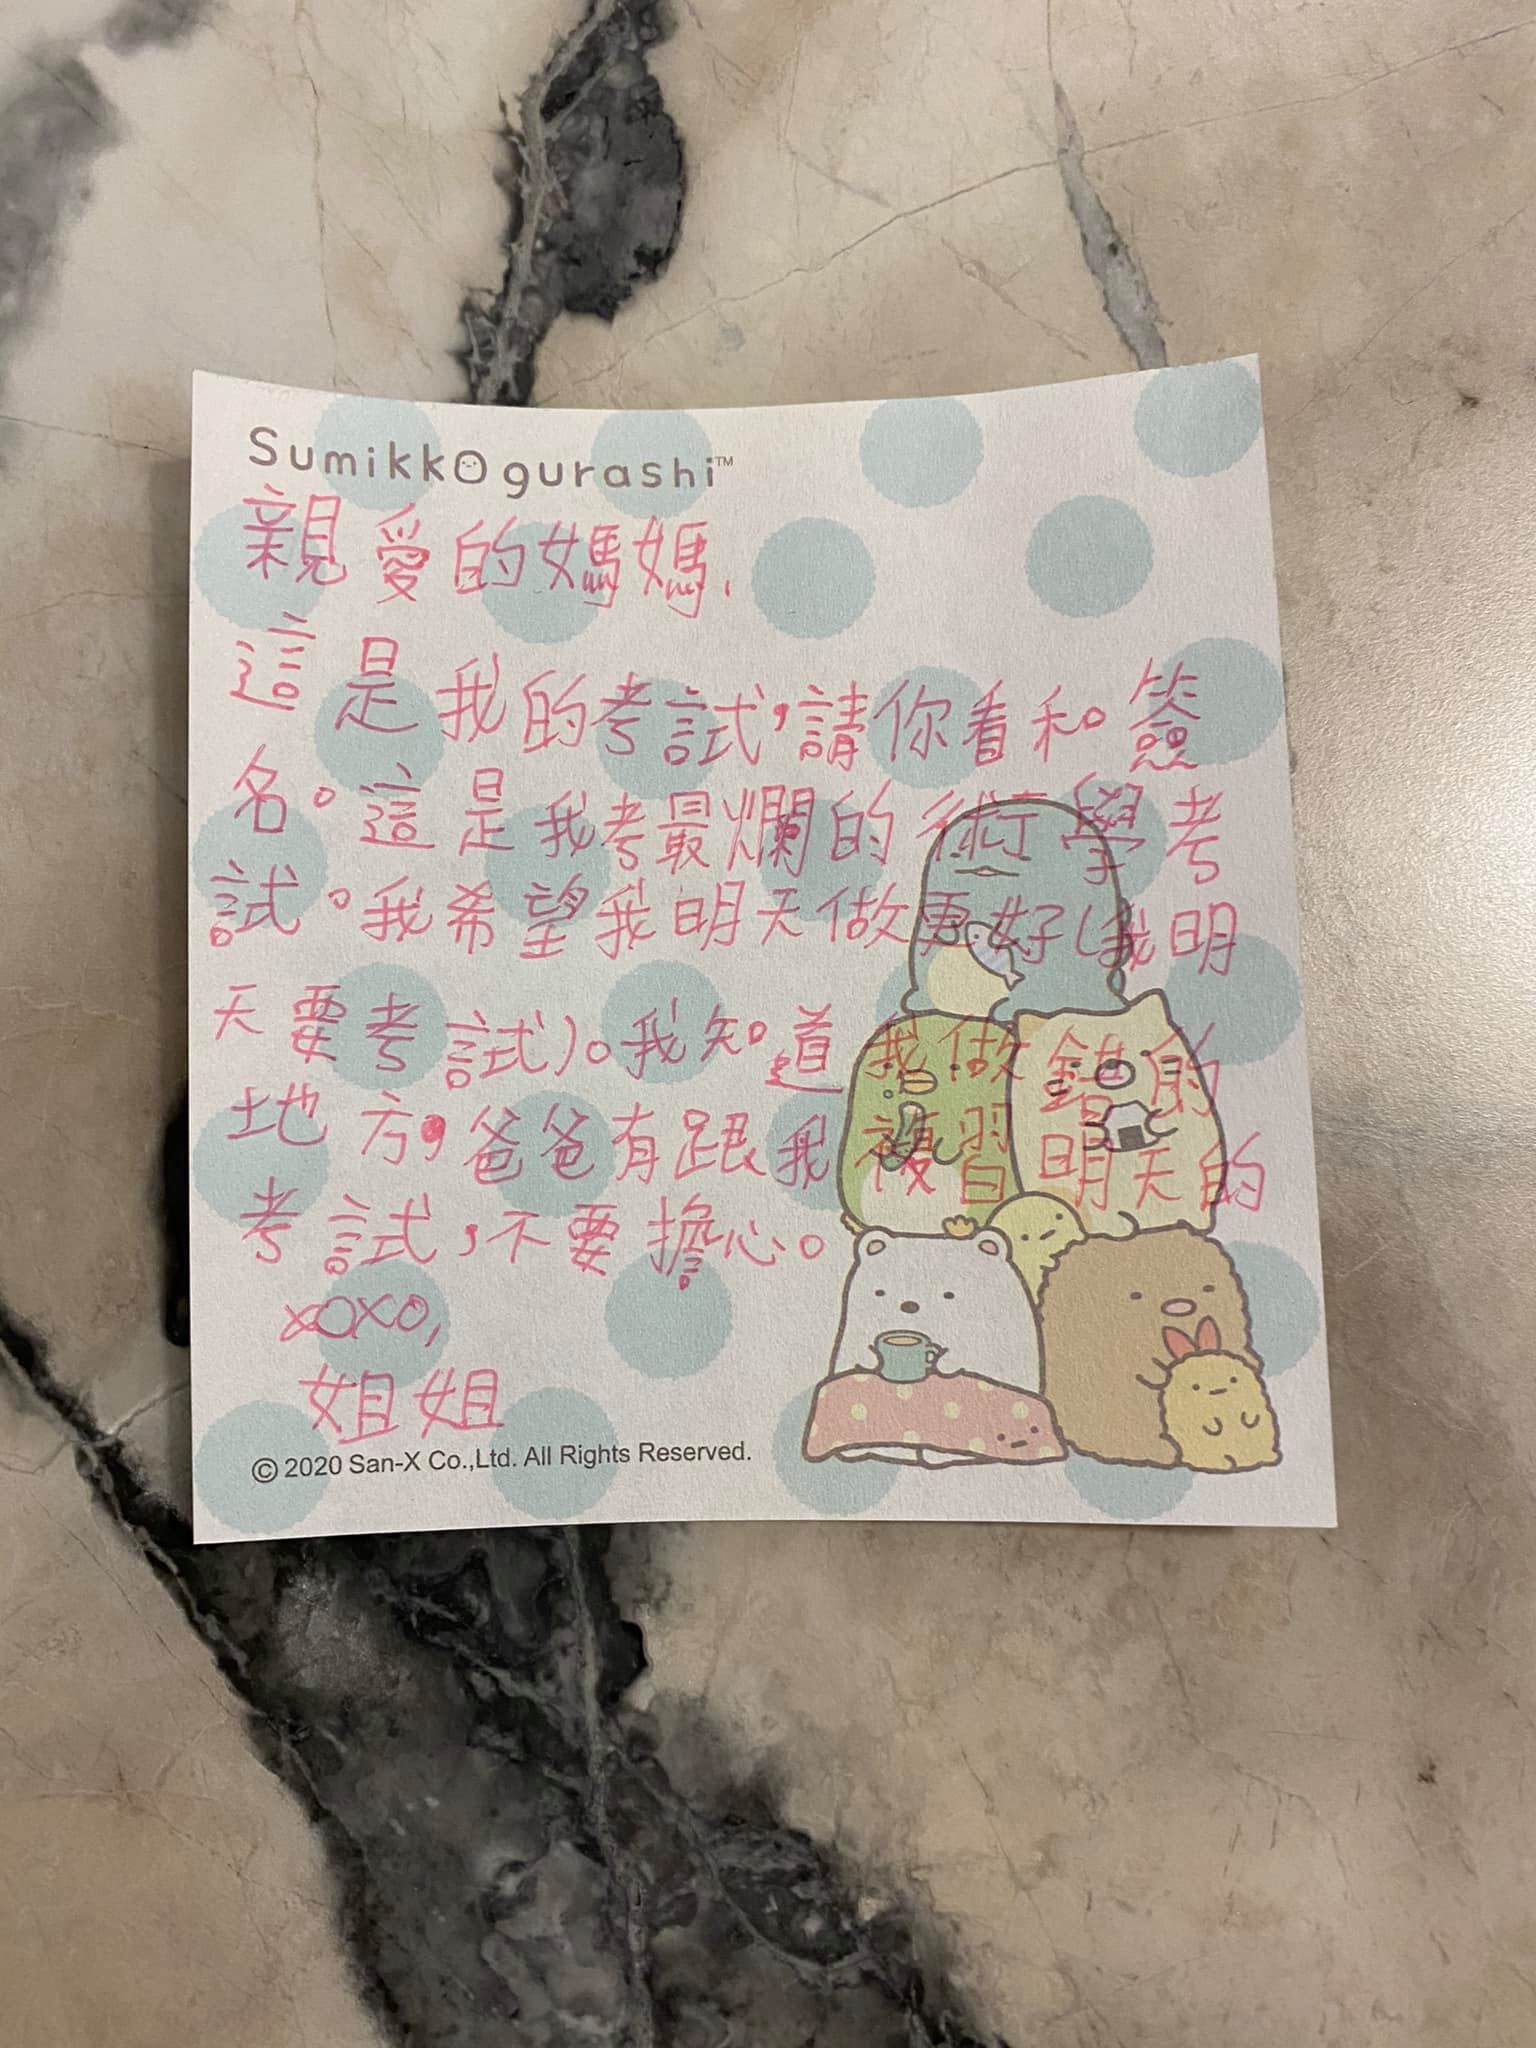 Sumikko gurashi™
親愛的媽媽,
這是我的考試,請你看和簽
名。這是我考最爛的術學考
試。我希望我明天做更好(我明
天要考試)。我知道我做錯的
地方,爸爸有跟我複習明天的
考試,不要擔心。
xoxo,
姐姐
© 2020 San-X Co.,Ltd. All Rights Reserved.